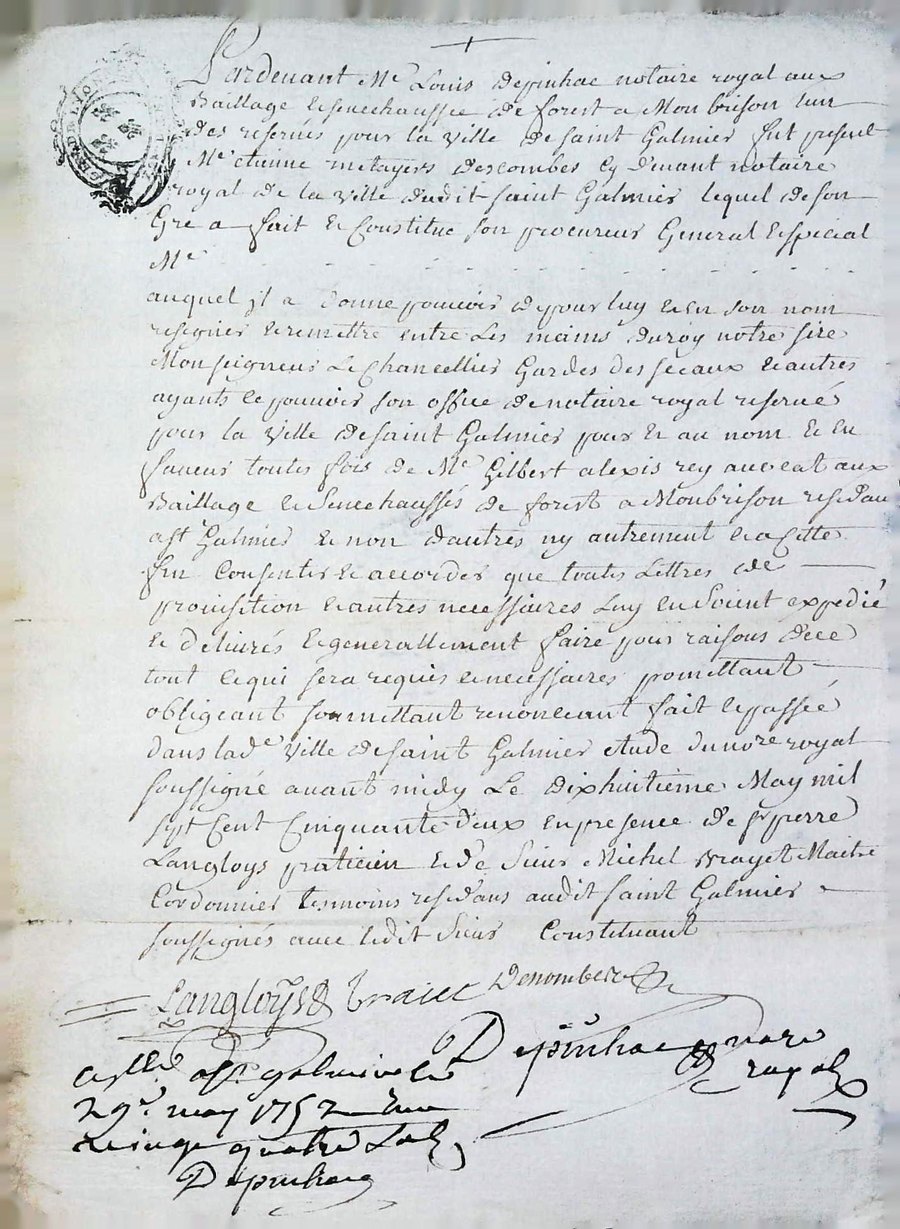 Pardevant Me Louis Depinhac notaire royal aux
Baillage & senechaussée de forest a Monbrison lun
des reservés pour la ville de saint Galmier fut present
Me etienne metayers descombes cy devant notaire
royal de la ville dudit saint Galmier lequel de son
Gre a fait & Constitue son procureur General & special
Me
auquel jl a donne pouvoir de pour luy & en son nom
resigner & remettre entre les mains du roy notre sire
Monseigneur Le Chancellier Gardes des seceaux & autres
ayants le pouvoir son office de notaire royal reservé
pour la ville de saint Galmier pour & au nom & en
faveur toutes fois de Me Gilbert alexis rey avocat aux
Baillage & Senechaussés de forest a Monbrison residau
a st Galmier & non dautres ny autrement & a cette
fin Consentir & accorder que toutes Lettres de
provisition & autres necessaires Luy en Soient expedié
& delivrés & generallement faire pour raisons de ce
tout ce qui sera requis & necessaires promettant
obligeant soumettant renonceant fait & passée
dans lade ville de saint Galmier etude du nore royal
soussigné avant midy Le dixhuitieme May mil
sept Cent Cinquante deux en presence de sr pierre
Langloys praticien & de Sieur Michel Brayet Maitre
Cordonnier tesmoins residans audit saint Galmier
soussignés avec ledit Sieur Constituant
Langloys Braiet
Depinhac nore
royal
a st galmier le
29e may 1752
quatre
Depinhac